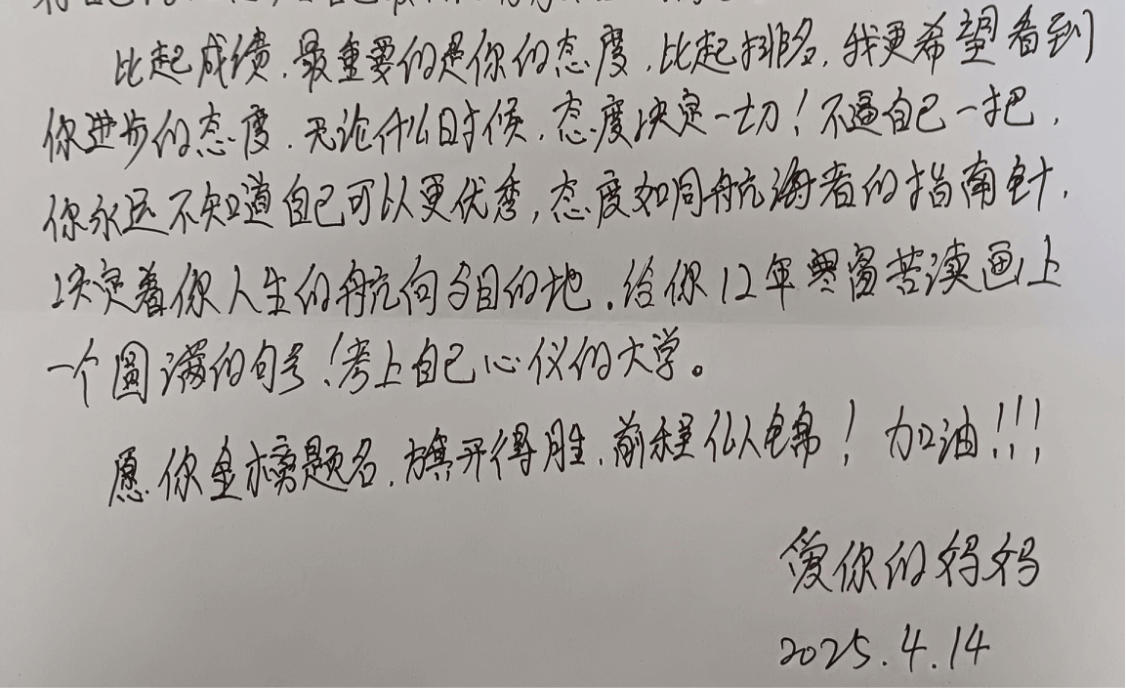 比起成绩，最重要的是你的态度，比起排名，我更希望看到
你进步的态度，无论什么时候，态度决定一切！不逼自己一把，
你永远不知道自己可以更优秀，态度如同航海者的指南针，
决定着你人生的航向与目的地。给你12年寒窗苦读画上
一个圆满的句号！考上自己心仪的大学。
愿你金榜题名，旗开得胜，前程似锦！加油！！！
爱你的妈妈
2025.4.14